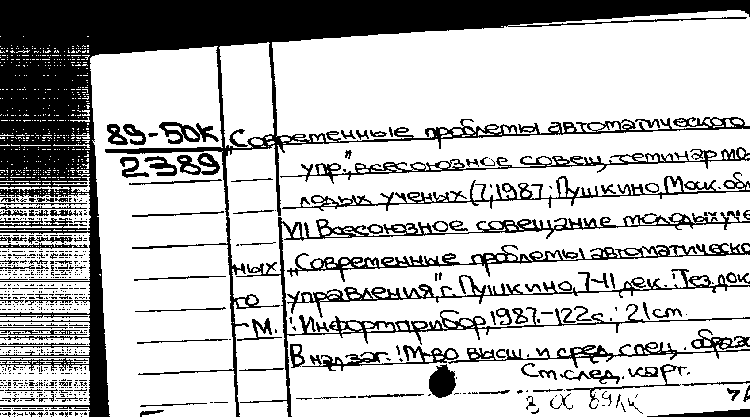 89-50к "Современные проблемы автоматического
2389 упр.", всесоюзное совещ.-семинар мо-
лодых ученых (7; 1987; Пушкино, Моск. обл
VII Всесоюзное совещание молодых уче
ных „Современные проблемы автоматическо
го управления", г. Пушкино, 7-11 дек. : Тез. док
-М. : Информприбор, 1987.-122с.; 21 cm.
В надзаг. : М-во высш. и сред. спец. образо
Ст. след. карт.